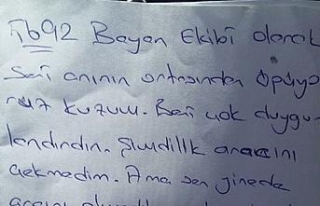 ıb92 Bayan Ekibi olarak
Seni anının ortasından öpüyo
ruz kuzum. Beni çok duygu
landırdın. Şimdilik aracını
çekmedim. Ama sen yinede